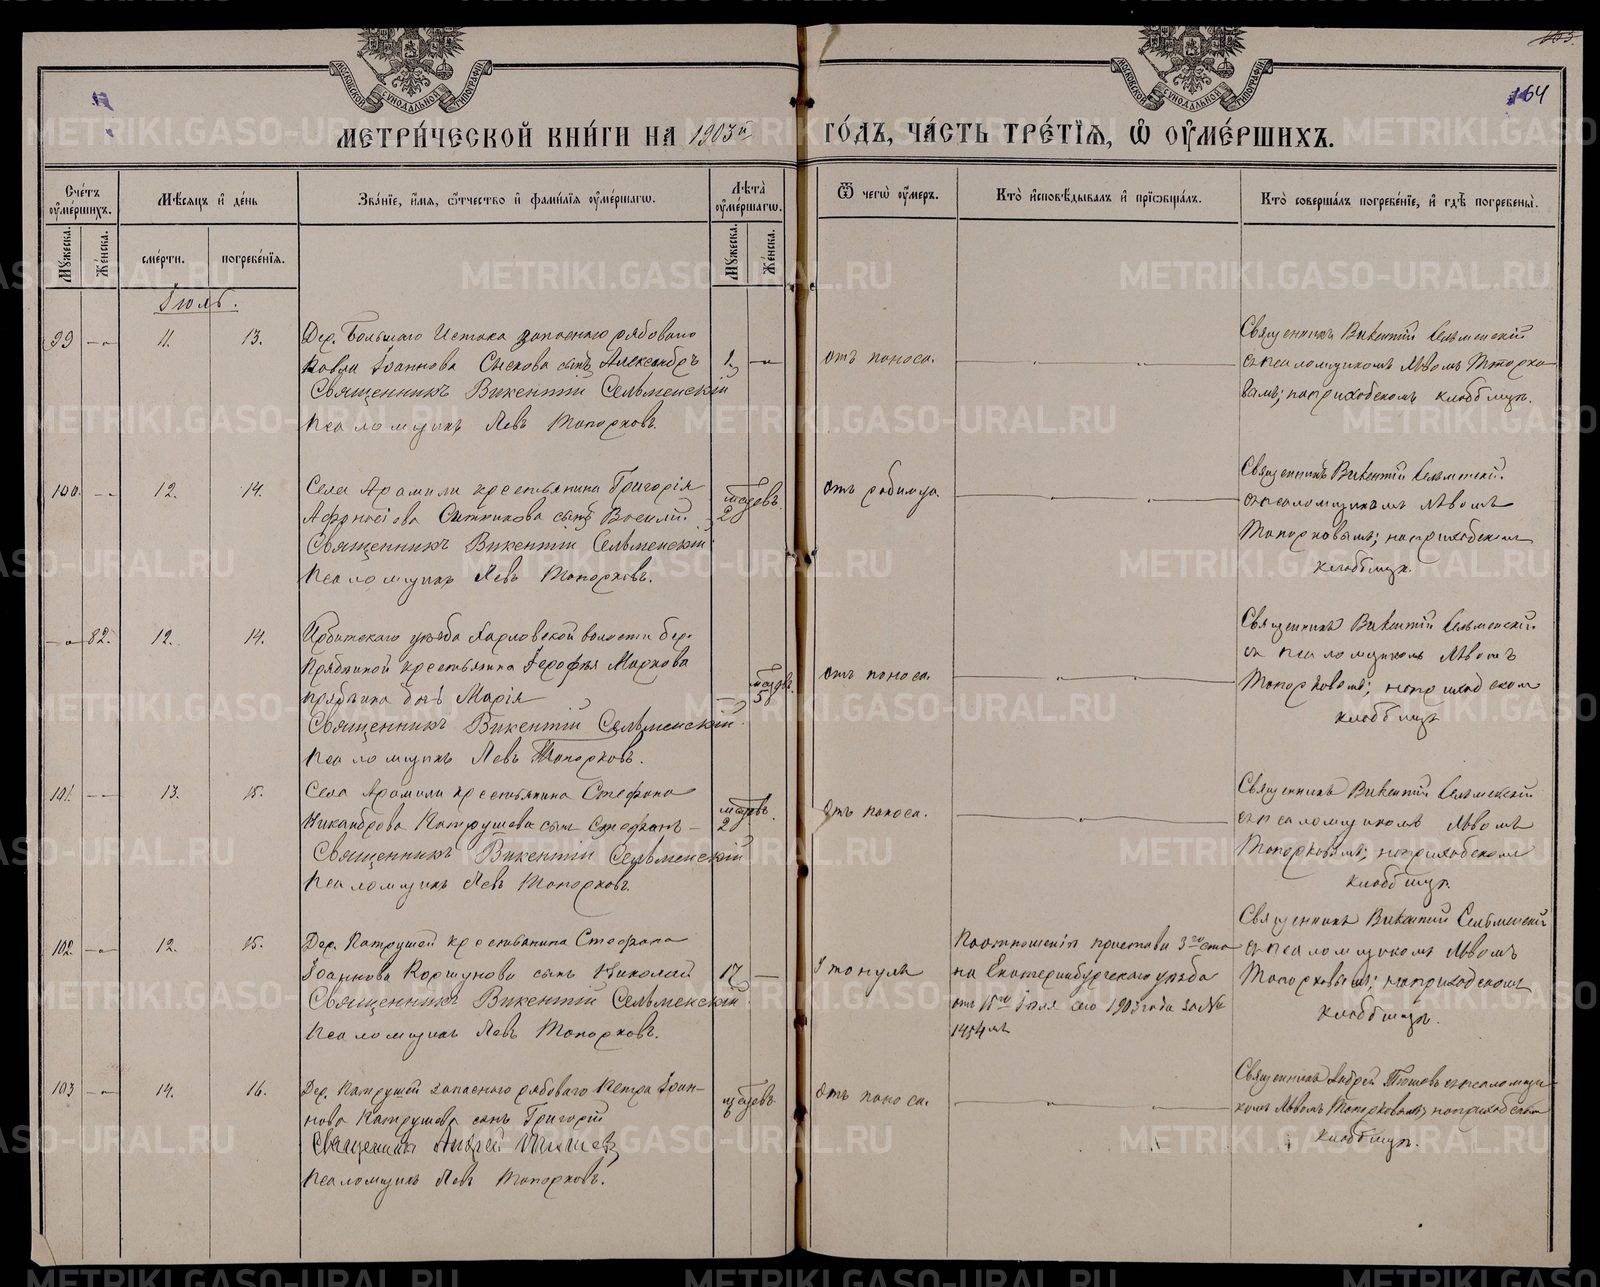 155.
164
МЕТРИ́ЧЕСКОЙ КНИ́ГИ НА 1903й ГО́ДЪ, ЧА́СТЬ ТРЕ́ТІѦ, Ѡ҆ ОУ҆МЕ́РШИХЪ.
Сче́тъ оу҆ме́ршихъ.
Мѣ́сяцъ и҆ де́нь
Зва́нїе, и҆́мѧ, ѻ҆́тчество и҆ фами́лїѧ оу҆ме́ршагѡ.
Лѣта̀ оу҆ме́ршагѡ.
Ѿ чегѡ̀ оу҆́меръ.
Кто̀ и҆сповѣ́дывалъ и҆ прїѡбща́лъ.
Кто̀ соверша́лъ погребе́нїе, и҆ гдѣ̀ погребены̀.
Мꙋ́жеска.
Же́нска.
сме́рти.
погребе́нїѧ.
Мꙋ́жеска.
Же́нска.
Іюль.
99 11. 13. Дер. Большаго Истока запаснаго рядоваго
Павла Іоаннова сынъ Александръ
Священникъ Викентій Сельменскій
Псаломщикъ Левъ Топорковъ.
1
отъ поноса.
Священникъ Викентій Сельменскій
съ псаломщикомъ Львомъ Топорко-
вымъ; на приходскомъ кладбищѣ.
100. 12. 14. Села Арамили крестьянина Григорія
сынъ Василій.
Священникъ Викентій Сельменскій
Псаломщикъ Левъ Топорковъ.
2
отъ родимца.
Священникъ Викентій Сельменскій
съ псаломщикомъ Львомъ
Топорковымъ; на приходском
кладбищѣ.
82. 12. 14. Ирбитскаго уѣзда волости дер.
крестьянина Маркова
дочь Марія
Священникъ Викентій Сельменскій
Псаломщикъ Левъ Топорковъ.
5
отъ поноса.
Священникъ Викентій Сельменскій
съ псаломщикомъ Львомъ
Топорковымъ; на приходском
кладбищѣ
101. 13. 15. Села Арамили крестьянина Стефана
Никандрова Катрушева сынъ Стефанъ
Священникъ Викентій Сельменскій
Псаломщикъ Левъ Топорковъ.
2
отъ поноса.
Священникъ Викентій Сельменскій
съ псаломщикомъ Львомъ
Топорковымъ; на приходском
кладбищѣ.
102. 12. 15. Дер. Патрушей крестьянина Стефана
Іоаннова Коршунова сынъ Николай
Священникъ Викентій Сельменскій
Псаломщикъ Левъ Топорковъ.
17
Утонулъ
По отношенію пристава 3го ста
на Екатеринбургскаго уѣзда
отъ 15го іюля сего 1903 года за №
1454мъ
Священникъ Викентій Сельменскій
съ псаломщикомъ Львомъ
Топорковымъ; на приходскомъ
кладбищѣ.
103 14. 16. Дер. Патрушей запаснаго рядоваго Петра Іоан-
нова Патрушева сынъ Григорій
Священникъ Андрей
Псаломщикъ Левъ Топорковъ.
отъ поноса.
Священникъ Андрей съ псаломщи-
комъ Львомъ Топорковымъ; на приходском
кладбищѣ.